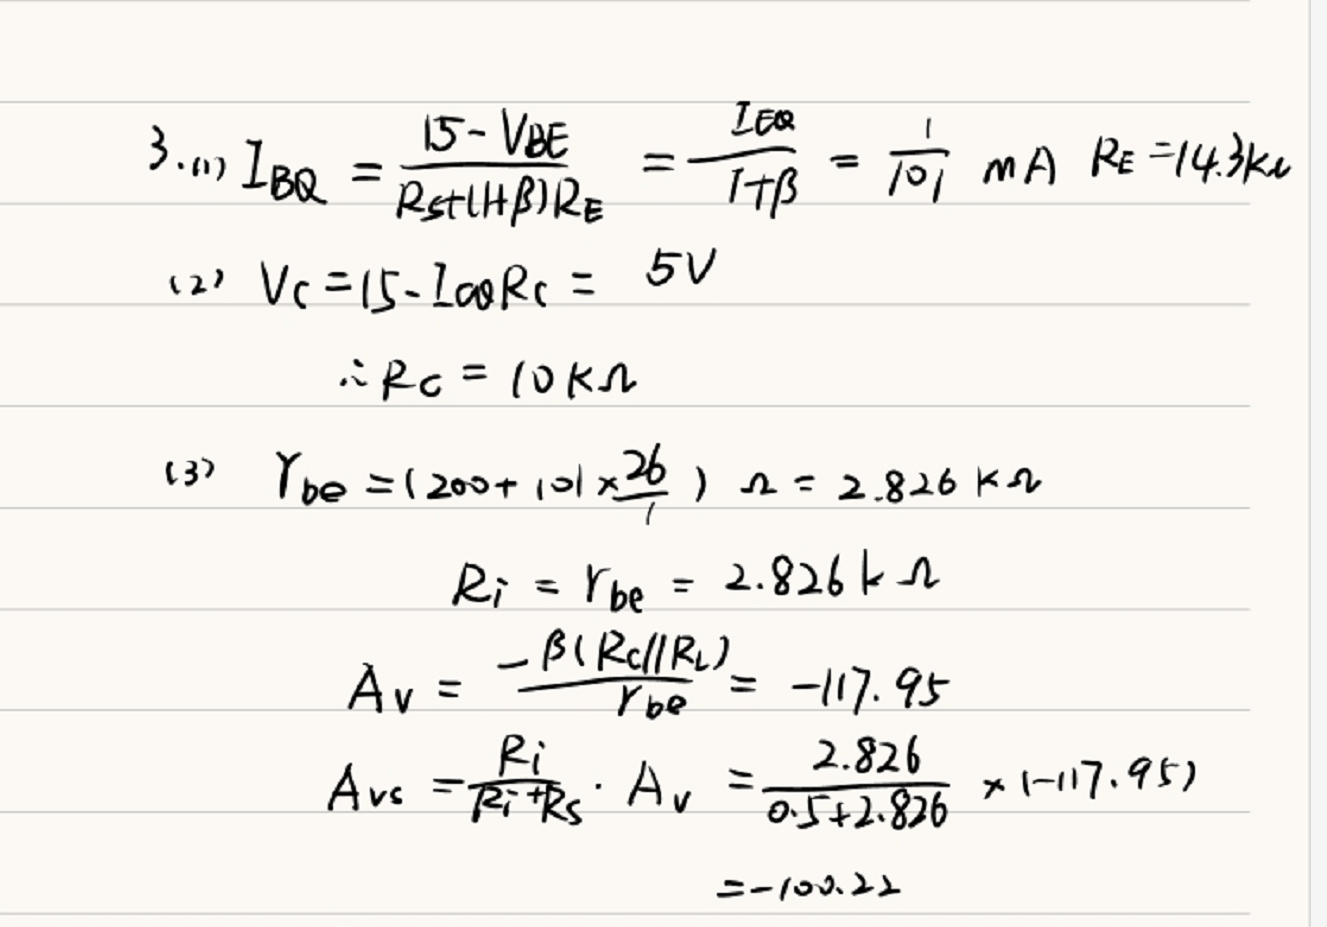 3.(1) I_BQ = (15-V_BE)/(Rs+(1+β)R_E) = I_EQ/(1+β) = 1/101 mA R_E=14.3kΩ
(2) Vc=15-I_CQ Rc = 5V
∴Rc = 10KΩ
(3) r_be =(200+101×26/1) Ω = 2.826 KΩ
Ri = r_be = 2.826kΩ
Av = -β(Rc//R_L)/r_be = -117.95
Avs = Ri/(Ri+Rs) · Av = 2.826/(0.5+2.826) × (-117.95)
=-100.22